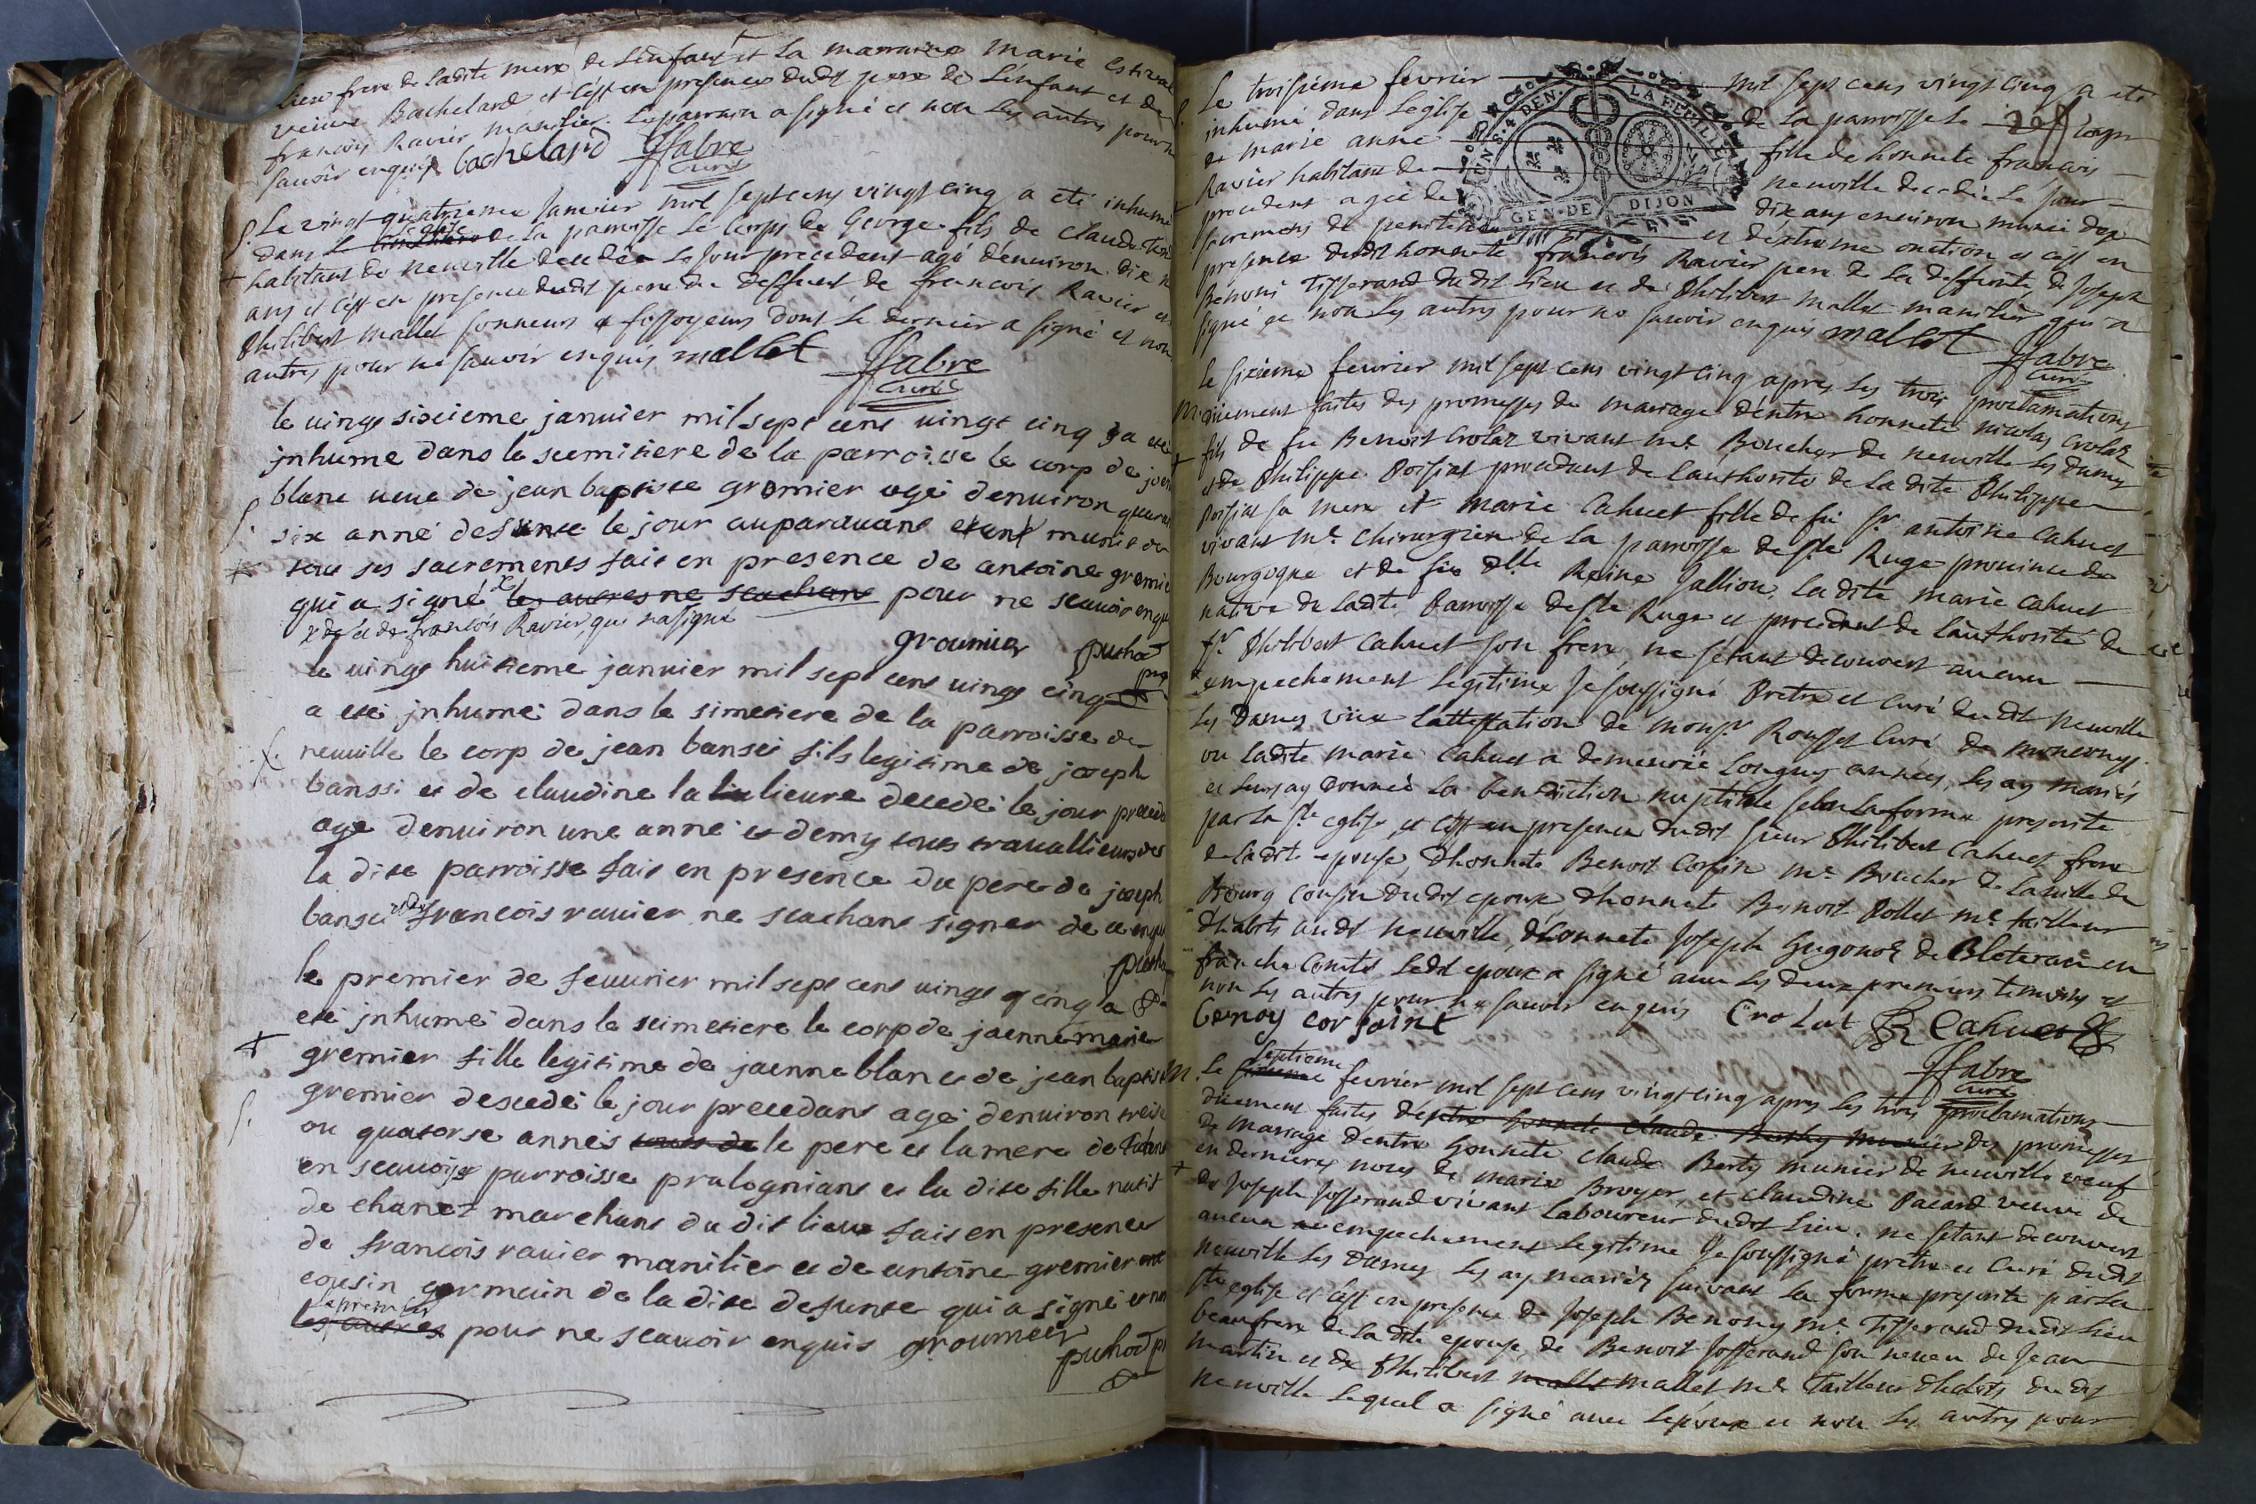 lieu frere de ladite mere de Lenfant et La marraine Marie Estival
veuve Bachelard et c'est en presence dudit pere de L'enfant et de
francois Ravier manilier. Le parrain a signé et non Les autres pour ne
savoir enquis bachelard ffabre
Curé
S. Le vingt quatrieme Janvier mil sept cens vingt cinq a eté inhumé
dans Le Cimetiere de La parroisse Le Corps de George fils de Claude
habitant de Neuville decedé Le Jour precedent agé d'environ dix
ans et c'est en presence dudit pere du deffunt de francois Ravier et
Philibert Mallet sonneurs & fossoyeurs dont Le dernier a signé et non
autres pour ne savoir enquis mallet ffabre
Curé
le vingt sixieme janvier mil sept cens vingt cinq a eté
jnhume dans le semitiere de la parroisse le corp de
blanc veuve de jean baptiste gromier agé denuiron
S. six anné defunte le jour auparauant etant munie de
tous ses sacrements fait en presence de antoine gremie
qui a signé les autres ne scachans pour ne scauoir enqu
x et de francois Ravier, qui na signé
groumier puthod
le vingt huitieme janvier mil sept cens vingt cinq
a eté jnhumé dans le simetiere de la parroisse de
neuville le corp de jean bansei fils legitime de joseph
banssi et de claudine la lieure decedei le jour preced
agé denuiron une anné et demy tous trauallieurs de
la dite parroisse fait en presence du pere de joseph
bansei et de francois rauier ne scachans signer de ce enquis
le premier de feuurier mil sept cens vingt cinq a
eté jnhumé dans le scimetiere le corp de jaenne marie
gremier fille legitime de jaenne blanc et de jean baptist
gremier descedei le jour precedans agé denuiron treise
S. ou quatorse annés tous de le pere et la mere de
en scauoiye parroisse pralognians et la dite fille natif
de chanet marchans du dit lieux fait en presence
de francois rauier manilier et de antoine gremier
cousin germain de la dite defunte qui a signé et non
le premier
les autres pour ne scauoir enquis groumier
puthod
S. Le troisieme fevrier mil sept cens vingt cinq a eté
inhumé dans L'eglise de La parroisse le corps
de marie anne fille de honnete francois
Ravier habitant de Neuville decedée Le jour
precedent agée de dix ans environ munie des
sacremens de penitence et d'extreme onction et c'est en
presence dudit honnete francois Ravier pere de La deffunte de Joseph
Benoni Tisserand dudit Lieu et de Philibert Mallet manilier qui a
signé et non Les autres pour ne savoir enquis mallet
ffabre
Curé
GEN. DE DIJON
Le sixieme fevrier mil sept cens vingt cinq apres Les trois proclamations
M. duement faites des promesses de mariage d'entre honnete nicolas Crolat
fils de feu Benoit Crolat vivant Me. Boucher de Neuville Les Dames
et de Philippe Poissat procedant de L'authorité de La dite Philippe
Poissat sa mere et Marie Cahuet fille de feu Sr. antoine Cahuet
vivant Me. Chirurgien de La parroisse de Ste Ruge province de
Bourgogne et de feu Dlle. Reine Jallion, La dite Marie Cahuet
native de Ladte. Parroisse de Ste Ruge et procedant de L'authorité de
Sr. Philibert Cahuet son frere, ne s'etant decouvert aucun
empechement Legitime Je soussigné Pretre et Curé dudit Neuville
Les Dames veüe L'attestation de Monsr. Rousset Curé de
ou Ladite Marie Cahuet a demeurée Longues années, Les ay mariés
et Leurs ay donnés La benediction nuptiale selon La forme prescrite
par La Ste eglise, et c'est en presence dudit Sieur Philibert Cahuet frere
de Ladite epouse, d'honnete Benoit Corsin Me. Boucher de La ville de
Bourg Cousin dudit epoux d'honnete Benoit Pollet Me. tailleur
d'habits audit Neuville, d'honnete Joseph Gugonot de Bleteran en
franche Comté. Ledit epoux a signé avec Les deux premiers temoins et
non Les autres pour ne savoir enquis Crolat Cahuet
benoy corsaint
ffabre
Curé
septieme
M. Le sixieme fevrier mil sept cens vingt cinq apres Les trois proclamations
duement faites d'entre honnete claude Berthy munier des promesses
de Mariage d'entre honnete Claude Berty munier de Neuville veuf
en dernieres noces de marie Broyer, et Claudine Pacard veuve de
de Joseph Josserand vivant Laboureur dudit Lieu. ne s'etant decouvert
aucun empechement Legitime Je soussigné pretre et Curé dudit
Neuville Les Dames Les ay mariéz suivant La forme prescrite par La
Ste eglise et c'est en presence de Joseph Benony Me. Tisserand dudit Lieu
beaufrere de La dite epouse, de Benoit Josserand son neveu de Jean
Martin et de Philibert Mallet Me. Tailleur d'habits dudit
Neuville Lequel a signé avec L'epoux et non Les autres pour